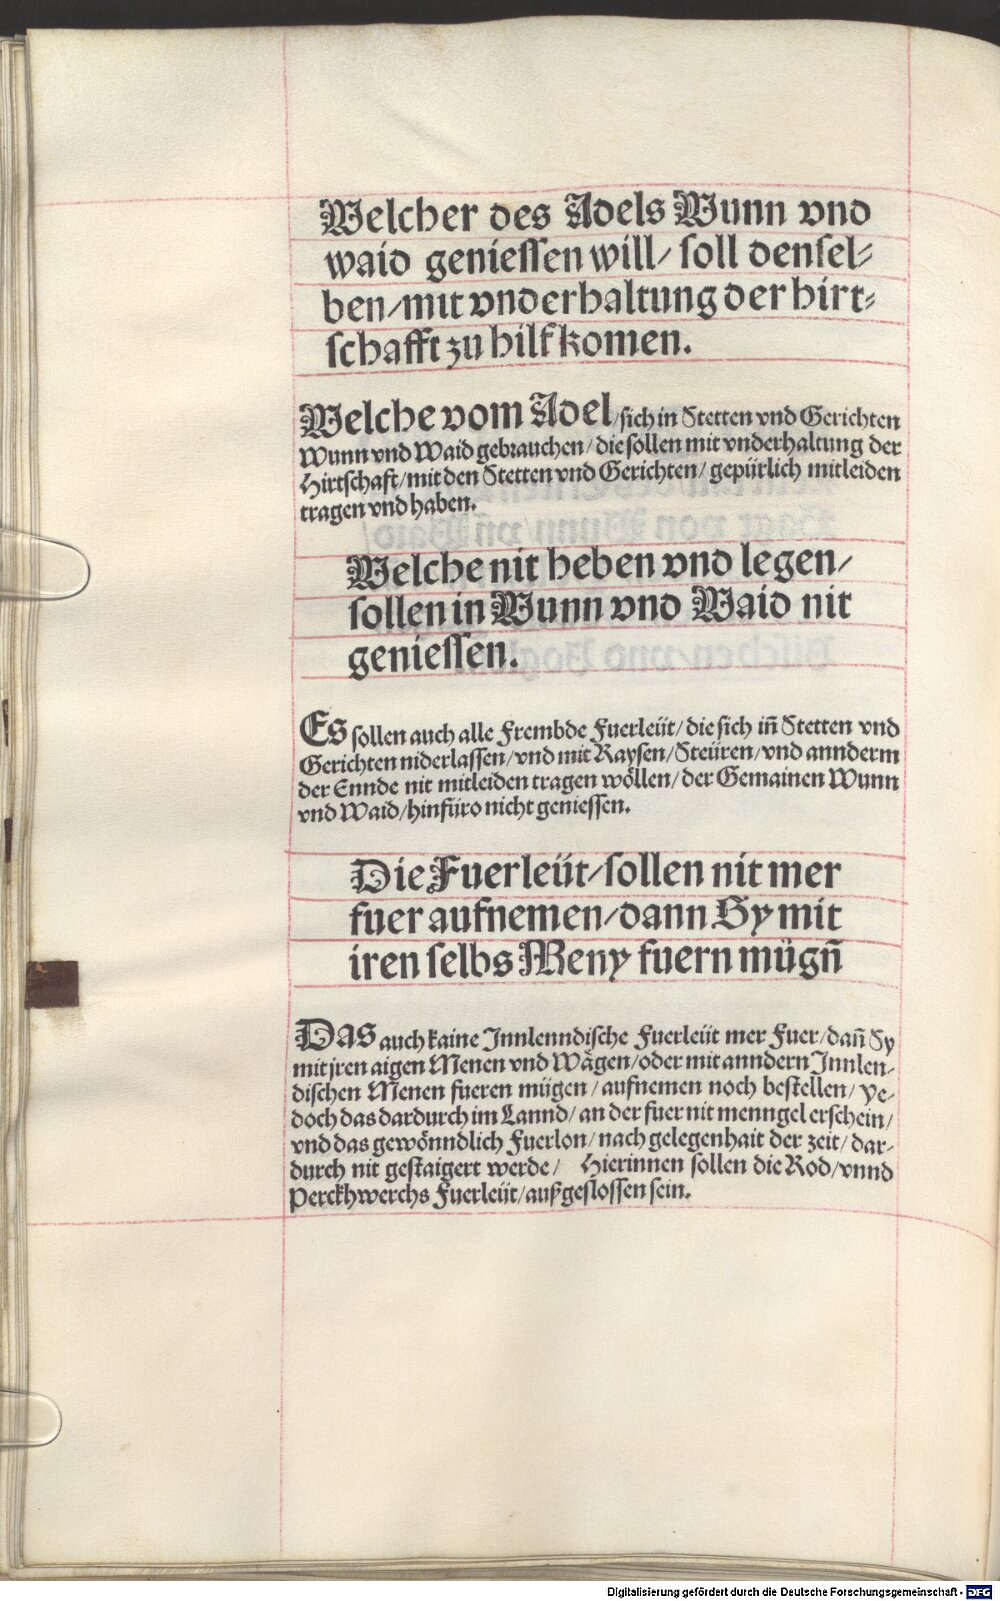 Welcher des Adels Wunn vnd
waid geniessen will/ soll densel-
ben/mit vnderhaltung der hirt-
schafft zu hilf komen.
Welche vom Adel/sich in Stetten vnd Gerichten
Wunn vnd Waid gebrauchen/ die sollen mit vnderhaltung der
Hirtschaft/mit den Stetten vnd Gerichten/ gepürlich mitleiden
tragen vnd haben.
Welche nit heben vnd legen/
sollen in Wunn vnd Waid nit
geniessen.
Es sollen auch alle Frembde Fuerleüt/ die sich in̄ Stetten vnd
Gerichten niderlassen/vnd mit Raysen/Steüren/vnd annderm
der Ennde nit mitleiden tragen wöllen/ der Gemainen Wunn
vnd Waid/hinfüro nicht geniessen.
Die Fuerleüt/sollen nit mer
fuer aufnemen/dann Sy mit
iren selbs Meny fuern mügn̄
Das auch kaine Innlenndische Fuerleüt mer Fuer/dan̄ Sy
mit jren aigen Menen vnd Wägen/oder mit anndern Innlen-
dischen Menen fueren mügen/ aufnemen noch bestellen/ Ye-
doch das dardurch im Lannd/ an der fuer nit menngel erschein/
vnd das gewönndlich Fuerlon/ nach gelegenhait der zeit/ dar-
durch nit gestaigert werde/ Hierinnen sollen die Rod/vnnd
Perckhwerchs Fuerleüt/außgeslossen sein.
Digitalisierung gefördert durch die Deutsche Forschungsgemeinschaft - DFG